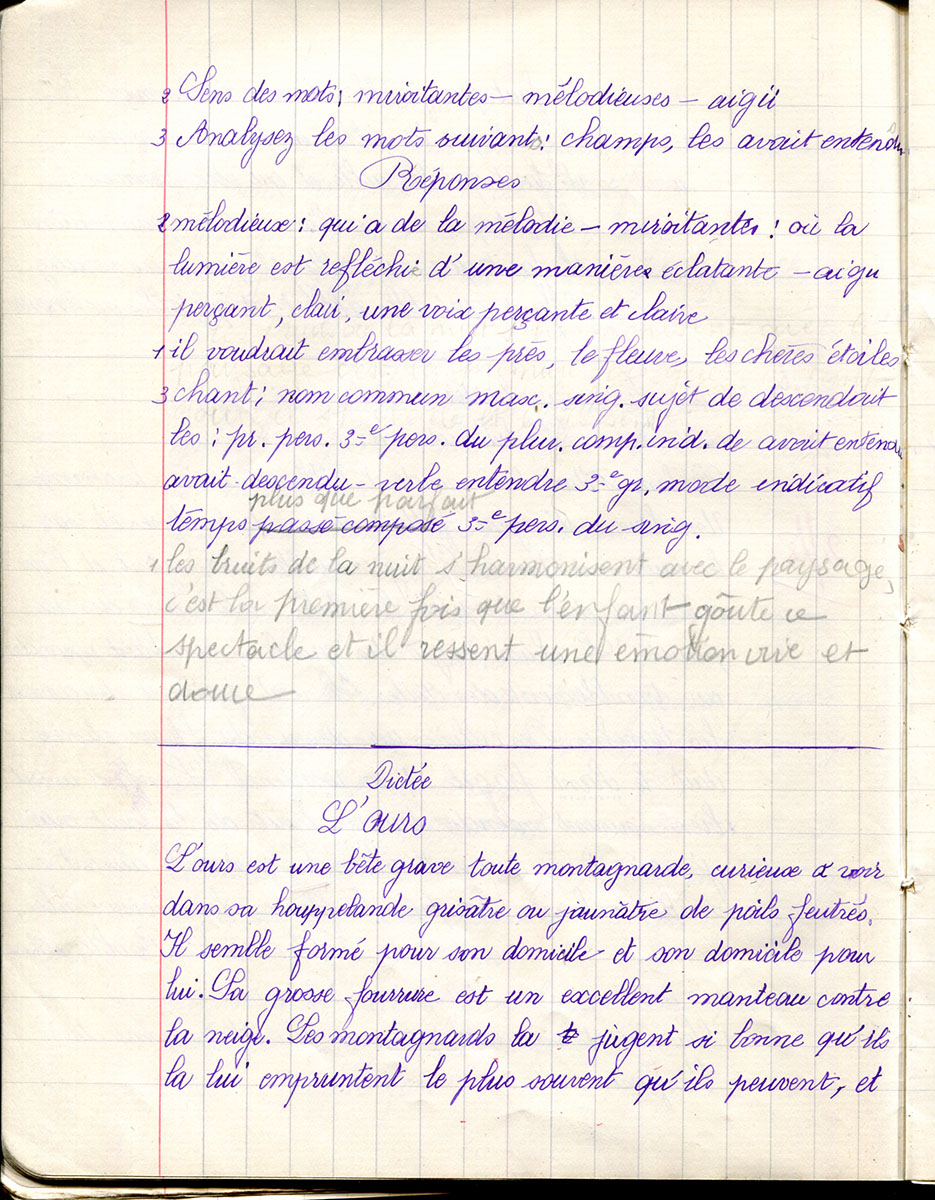 2 Sens des mots; miroitantes – mélodieuses – aigü
3 Analysez les mots suivants: champs, les avait entendu
Réponses
2 mélodieux: qui a de la mélodie – miroitantes: où la
lumière est refléchie d'une manière éclatante – aigu
perçant, clair, une voix perçante et claire
1 il voudrait embrasser les près, le fleuve, les chères étoiles
3 chant; nom commun masc. sing. sujet de descendait
les; pr. pers. 3-e pers. du plur. comp. ind. de avait entendu
avait descendu – verbe entendre 3-e gr. mode indicatif
plus que parfait
temps passé composé 3-e pers. du sing.
1 les bruits de la nuit s'harmonisent avec le paysage,
c'est la première fois que l'enfant goûte ce
spectacle et il ressent une émotion vive et
douce
Dictée
L'ours
L'ours est une bête grave toute montagnarde, curieux à voir
dans sa houppelande grisâtre ou jaunâtre de poils feutrés.
Il semble formé pour son domicile et son domicile pour
lui. Sa grosse fourrure est un excellent manteau contre
la neige. Les montagnards la jugent si bonne qu'ils
la lui empruntent le plus souvent qu'ils peuvent, et